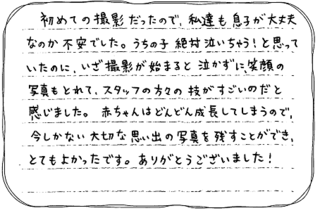 初めての撮影だったので、私達も息子が大丈夫
なのか不安でした。うちの子 絶対泣いちゃう!と思って
いたのに、いざ撮影が始まると泣かずに、笑顔の
写真もとれて、スタッフの方々の技がすごいのだと
感じました。 赤ちゃんはどんどん成長してしまうので、
今しかない大切な思い出の写真を残すことができ、
とてもよかったです。ありがとうございました!